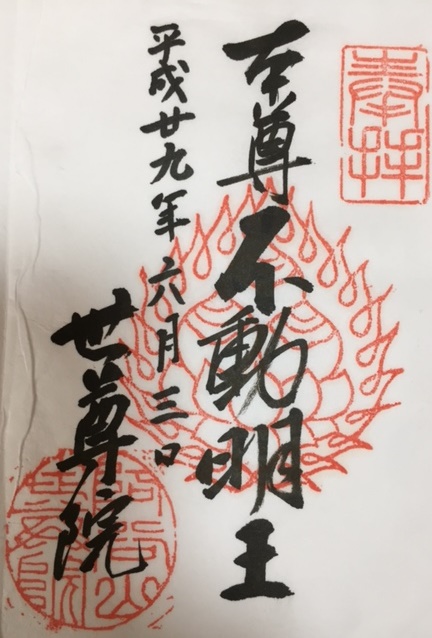 奉拝
本尊不動明王
平成廿九年六月三日
世尊院